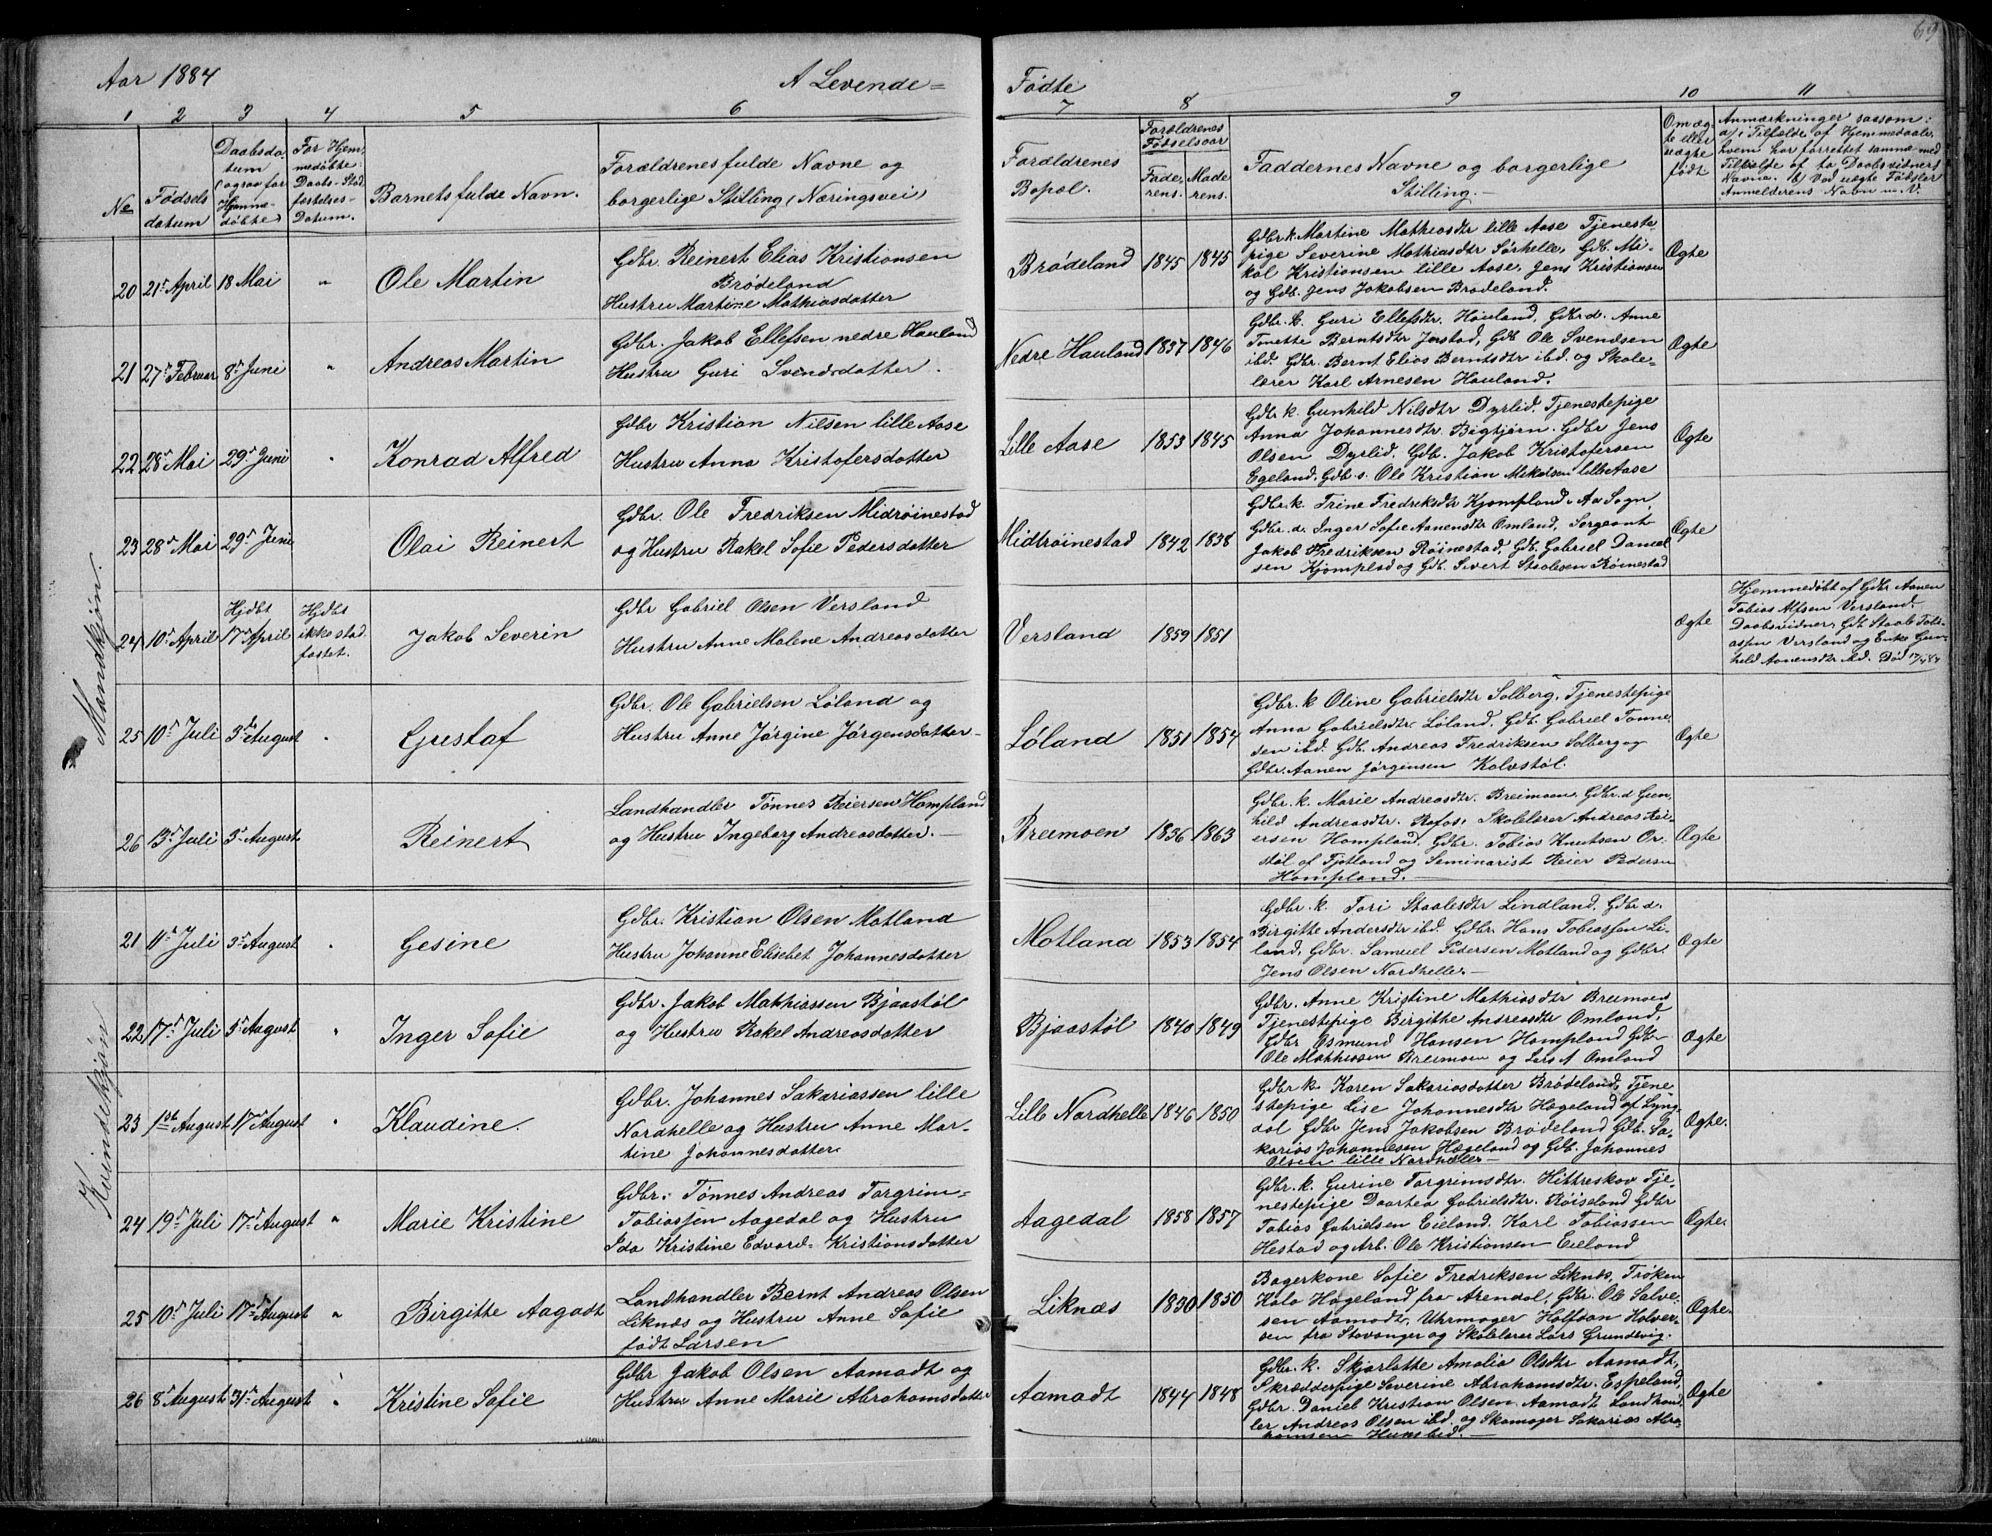 69
Aar 1884 A Levende= Fødte
1 2 3 4 5 6 7 8 9 10 11
No
Fødsels
datum
Daabsda-
tum
(ogsaa for
Hjemme-
døbte)
For Hjem-
medøbte:
Daabs-Stad-
festelses-
Datum.
Barnets fulde Navn.
Forældrenes fulde Navne og
borgerlige Stilling (Næringsvei)
Forældrenes
Bopæl.
Forældrenes
Fødselsaar
Fade-
rens.
Mode-
rens.
Faddernes Navne og borgerlige
Stilling.
Om æg-
te eller
uægte
født
Anmærkninger saasom:
a) i Tilfælde af Hjemmedaab,
hvem har forrettet samme med
Tilføielse af to Daabsvidners
Navne. b) Ved uægte Fødsler
Anmelderens Navn m. V.
Mandkjøn.
20 21de April 18 Mai " Ole Martin
Gdbr. Reinert Elias Kristiansen
Brødeland
Hustru Martine Mathiasdatter
Brødeland 1845 1845
Gdbr.k. Martine Mathiasdtr lille Aase Tjeneste
pige Severine Mathiasdtr Sørhelle, Gdb. Mi-
kal Kristiansen lille Aase, Jens Kristiansen
og Gdb. Jens Jakobsen Brødeland.
Ægte
21 27de Februar 8de Juni " Andreas Martin
Gdbr. Jakob Ellefsen nedre Hauland
Hustru Guri Svendsdatter.
Nedre Hauland 1837 1846
Gdbr. k. Guri Ellefsdtr. Hauland, Gdbr.d. Anne
Tonette Berntsdtr Jerstad, Gdb Ole Svendsen
ibd. Gdbr. Bernt Elias Berntsdtr ibd. og Skole-
lærer Karl Arnesen Hauland.
Ægte
22 28de Mai 29de Juni " Konrad Alfred
Gdbr Kristian Nilsen lille Aase
Hustru Anna Kristofersdatter
Lille Aase 1853 1845
Gdbr k. Gunhild Nilsdtr Dyrlid, Tjenestepige
Anna Johannesdtr Bigtjørn. Gdbr Jens
Olsen Dyrlid. Gdb. Jakob Kristofersen
Egeland, Gdb.s. Ole Kristian Mikalsen lille Aase
Ægte
23 28de Mai 29de Juni Olai Reinert
Gdbr. Ole Fredriksen Midrøinestad
og Hustru Rakel Sofie Pedersdatter
Midtrøinestad 1842 1838
Gdbr.k. Trine Fredriksdtr Kjømpland, Aa Sogn,
Gdbr. d. Inger Sofie Aanensdtr Omland, Sergeant
Jakob Fredriksen Røinestad, Gdb. Gabriel Daniel
sen Kjømplad og Gdb. Sivert Staalesen Røinestad
Ægte
24 10de April Hjdbt 17de April Hjdbt
ikke stad
fæstet.
Jakob Severin
Gdbr Gabriel Olsen Versland
Hustru Anne Malene Andreasdatter
Versland 1859 1851
Ægte
Hjemmedøbt af Gdbr Aanen
Tobias Alfsen Versland.
Daabsvidner, Gdb. Staale Tobi-
assen Versland og Enke Gun-
hild Aanensdtr ibd. Død 17/4 84
25 10de Juli 3de August " Gustaf
Gdbr. Ole Gabrielsen Løland og
Hustru Anne Jørgine Jørgensdatter
Løland 1851 1854
Gdbr. k Oline Gabrielsdtr Solberg, Tjenestepige
Anna Gabrielsdtr Løland, Gdb. Gabriel Tønne
sen ibd. Gdb. Andreas Fredriksen Solberg og
Gdbr. Aanen Jørgensen Kalvstøl.
Ægte
26 13de Juli 3de August Reinert
Landhandler Tønnes Reiersen Hompland
og Hustru Ingeborg Andreasdatter.
Breimoen 1836 1863
Gdbr. k. Marie Andreasdtr. Breimoen, Gdbr. d Gun
hild Andreasdtr. Rafos, Skolelærer Andreas Rei
ersen Hompland, Gdbr. Tobias Knutsen Or-
støl af Fjotland og Seminarist Reier Pedersen
Hompland.
Ægte
Kvindekjøn
21 11de Juli 3de August " Gesine
Gdbr. Kristian Olsen Motland
Hustru Johanne Elisebet Johannesdatter
Motland 1853 1854
Gdbr. k. Tori Staalesdtr Lindland, Gdbr d.
Birgitte Andersdtr ibd. Gdbr. Hans Tobiassen Li-
land, Gdbr. Samuel Pedersen Motland og Gdbr.
Jens Olsen Nordhelle.
Ægte
22 17de Juli 3de August " Inger Sofie
Gdbr. Jakob Mathiassen Bjaastøl
og Hustru Rakel Andreasdatter
Bjaastøl 1840 1849
Gdbr. Anne Kristine Mathiasdtr Breimoen
Tjenestepige Birgitte Andreasdtr Omland,
Gdbr Osmund Hansen Hompland Gdb
Ole Mathiassen Breimoen og Lars A Omland
Ægte
23 1ste August 17de August " Klaudine
Gdbr. Johannes Sakariassen lille
Nordhelle og Hustru Anne Mar-
tine Johannesdatter
Lille Nordhelle 1846 1850
Gdbr k. Karen Sakariasdatter Brødeland, Tjene
stepige Lise Johannesdtr Hægeland af Lyng-
dal Gdbr Jens Jakobsen Brødeland Gdb. Sa-
karias Johannesen Hægeland og Gdb. Johannes
Olsen lille Nordhelle
Ægte.
24 19de Juli 17de August " Marie Kristine
Gdbr. Tønnes Andreas Torgrim-
Tobiassen Aagedal og Hustru
Ida Kristine Edvard- Kristiansdatter
Aagedal 1858 1857
Gdbr. k. Gurine Torgrimsdtr. Hittreskov Tje-
nestepige Daartea Gabrielsdtr. Røiseland Gdbr
Tobias Gabrielsen Eieland. Karl Tobiassen
Hestad og Arb. Ole Kristiansen Eieland
Ægte.
25 10de Juli 17de August " Birgitte Aagodt
Landhandler Bernt Andreas Olsen
Liknæs og Hustru Anne Sofie
født Larsen
Liknæs 1850 1850
Bagerkone Sofie Fredriksen Liknæs, Frøken
Kala Hageland fra Arendal, Gdbr. Ole Salve-
sen Aamodt, Uhrmager Halfdan Halvor-
sen fra Stavanger og Skolelærer Lars Grundevig.
Ægte.
26 8de August 31de August " Kristine Sofie
Gdbr Jakob Olsen Aamodt og
Hustru Anne Marie Abrahamsdatter
Aamodt 1844 1848
Gdbr. k. Skjarlotte Amalia Olsdtr Aamodt,
Skrædderpige Severine Abrahamsdtr. Espeland,
Gdbr. Daniel Kristian Olsen Aamodt Landhand
ler Andreas Olsen ibd. og Skomager Sakarias Abra-
hamsen Hunsbed.
Ægte